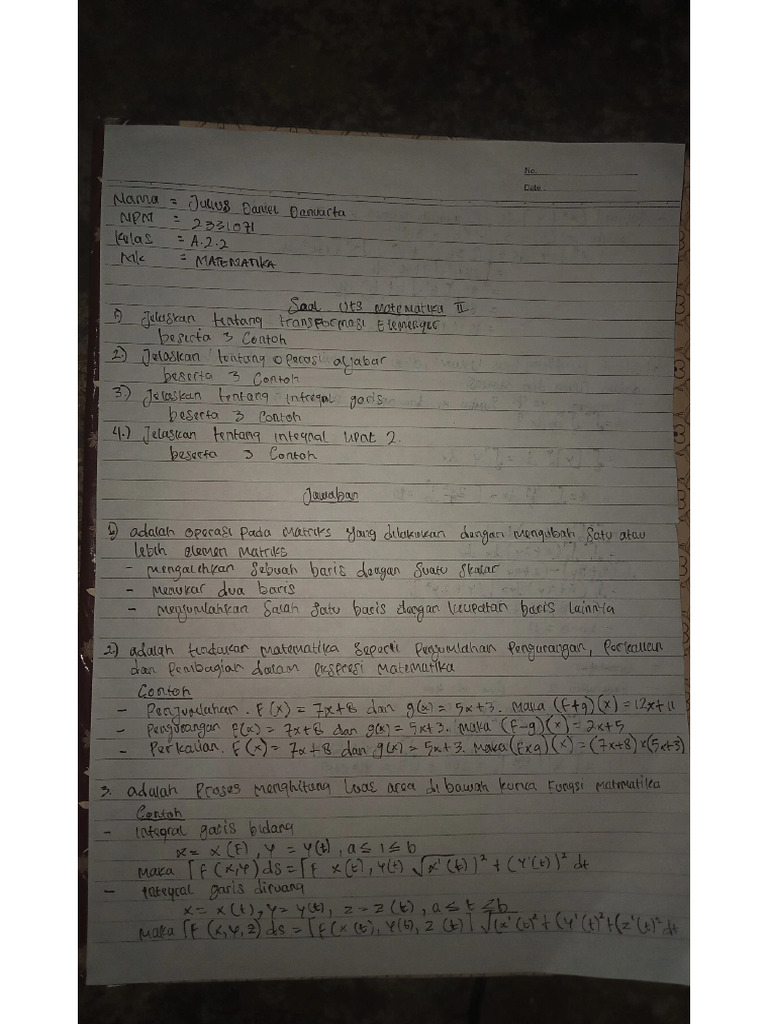 No.
Date.
Nama = Julius Daniel Danuarta
NPM = 2331071
Kelas = A.2.2
MK = MATEMATIKA
Soal UTS Matematika II
1) Jelaskan tentang transformasi Elementer
beserta 3 Contoh
2.) Jelaskan tentang operasi aljabar
beserta 3 Contoh
3.) Jelaskan tentang integral garis
beserta 3 Contoh
4.) Jelaskan tentang integral lipat 2.
beserta 3 Contoh
Jawaban
1) adalah operasi pada Matriks yang dilakukan dengan mengubah satu atau
lebih elemen Matriks
- mengalihkan sebuah baris dengan suatu skalar
- menukar dua baris
- menjumlahkan salah satu baris dengan kelipatan baris lainnia
2.) adalah tindakan matematika seperti Penjumlahan Pengurangan, Perkalian
dan Pembagian dalam ekspresi Matematika
Contoh
- Penjumlahan. F(x) = 7x+8 dan g(x) = 5x+3. Maka (F+g)(x) = 12x+11
- Pengurangan F(x) = 7x+8 dan g(x) = 5x+3. Maka (F-g)(x) = 2x+5
- Perkalian. F(x) = 7x+8 dan g(x) = 5x+3. Maka (Fxg)(x) = (7x+8)x(5x+3)
3. adalah Proses menghitung luas area di bawah kurva Fungsi Matematika
Contoh
- integral garis bidang
x = x(F), y = y(t), a ≤ 1 ≤ b
Maka ⌈F(x,y) ds = ⌈F x(t), y(t) √x'(t))² + (y'(t))² dt
- integral garis diruang
x = x(t), y = y(t), z = z(t), a ≤ t ≤ b
Maka ⌈F(x,y,z) ds = ⌈F(x(t), y(t), z(t)] √(x'(t)² + (y'(t)² + (z'(t)² dt